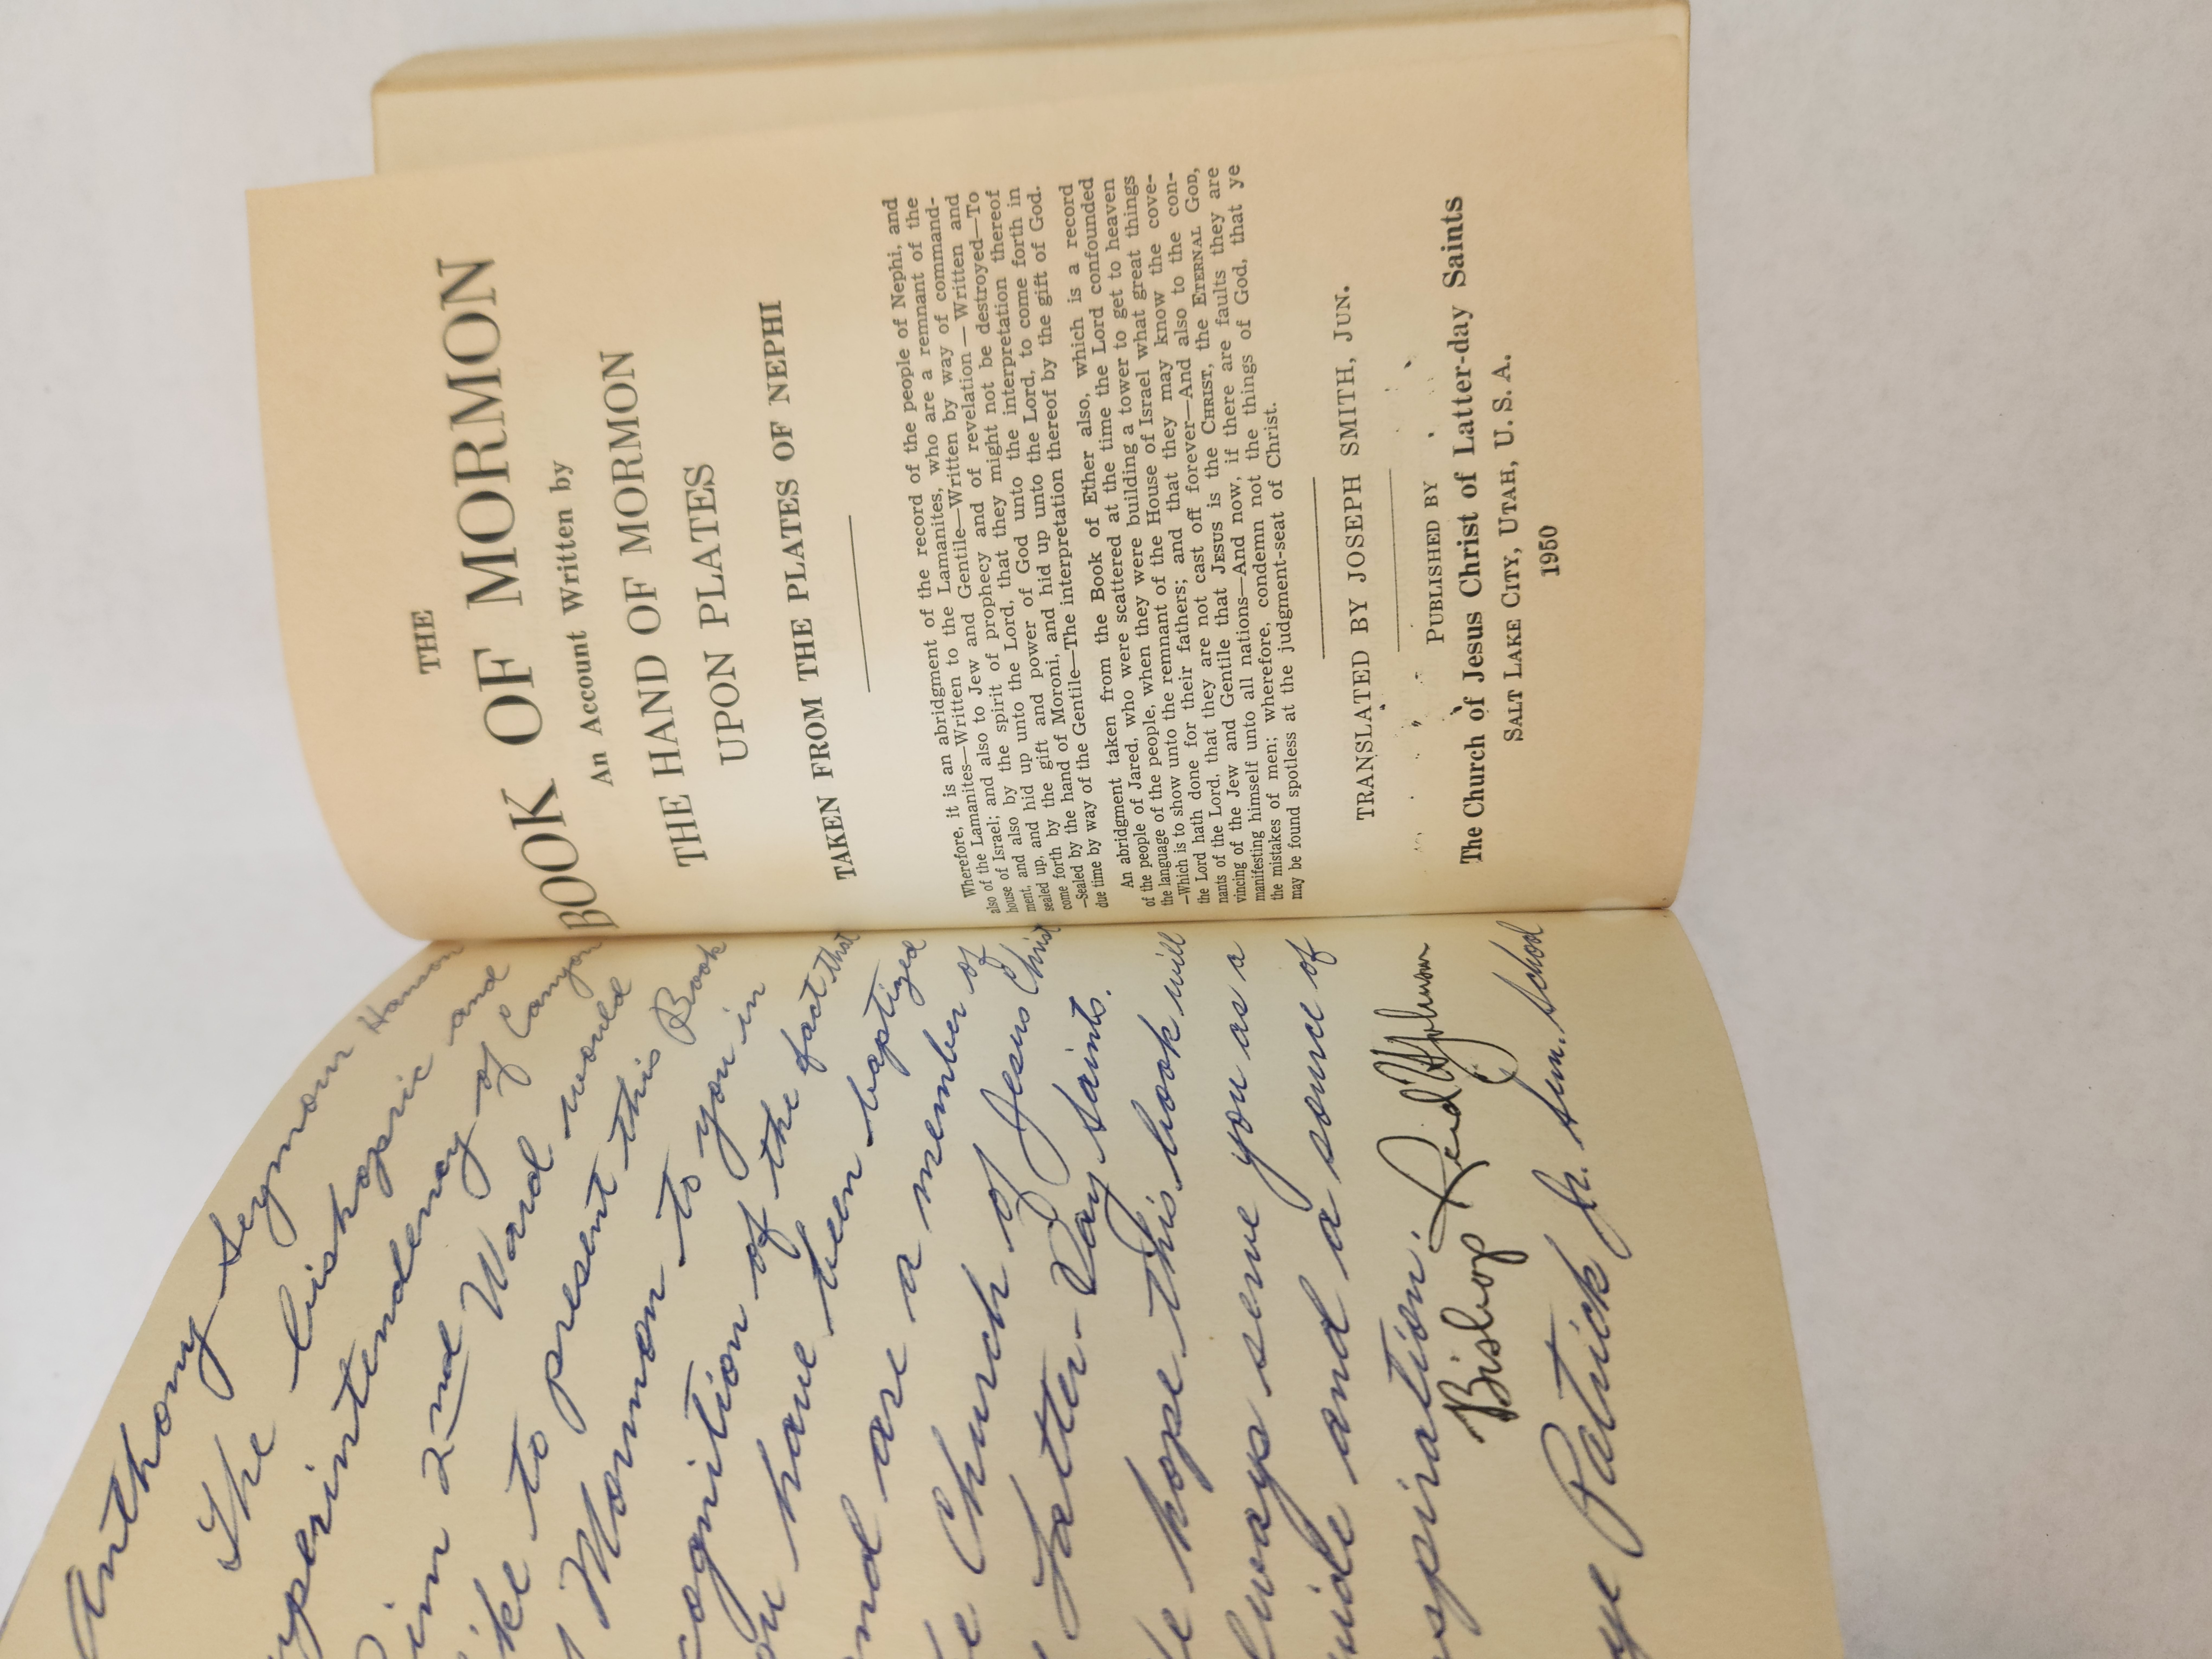 Anthony Seymour Hanson
The bishopric and
uperintendency of
im 2nd Ward of Canyon
ike to present this Book would
Mormon to you in
ognition of the fact that
ou have been baptized
nd are a member of
e Church of Jesus Christ
Latter-Day Saints.
e hope this book will
lways serve you as a
uide and a source of
spiration.
Bishop Reid H. Johnson
ye Patrick Jr. Sun. School
THE
BOOK OF MORMON
An Account Written by
THE HAND OF MORMON
UPON PLATES
TAKEN FROM THE PLATES OF NEPHI
Wherefore, it is an abridgment of the record of the people of Nephi, and
also of the Lamanites—Written to the Lamanites, who are a remnant of the
house of Israel; and also to Jew and Gentile—Written by way of command-
ment, and also by the spirit of prophecy and of revelation—Written and
sealed up, and hid up unto the Lord, that they might not be destroyed—To
come forth by the gift and power of God unto the interpretation thereof
—Sealed by the hand of Moroni, and hid up unto the Lord, to come forth in
due time by way of the Gentile—The interpretation thereof by the gift of God.
An abridgment taken from the Book of Ether also, which is a record
of the people of Jared, who were scattered at the time the Lord confounded
the language of the people, when they were building a tower to get to heaven
—Which is to show unto the remnant of the House of Israel what great things
the Lord hath done for their fathers; and that they may know the cove-
nants of the Lord, that they are not cast off forever—And also to the con-
vincing of the Jew and Gentile that JESUS is the CHRIST, the ETERNAL GOD,
manifesting himself unto all nations—And now, if there are faults they are
the mistakes of men; wherefore, condemn not the things of God, that ye
may be found spotless at the judgment-seat of Christ.
TRANSLATED BY JOSEPH SMITH, JUN.
PUBLISHED BY
The Church of Jesus Christ of Latter-day Saints
SALT LAKE CITY, UTAH, U. S. A.
1950